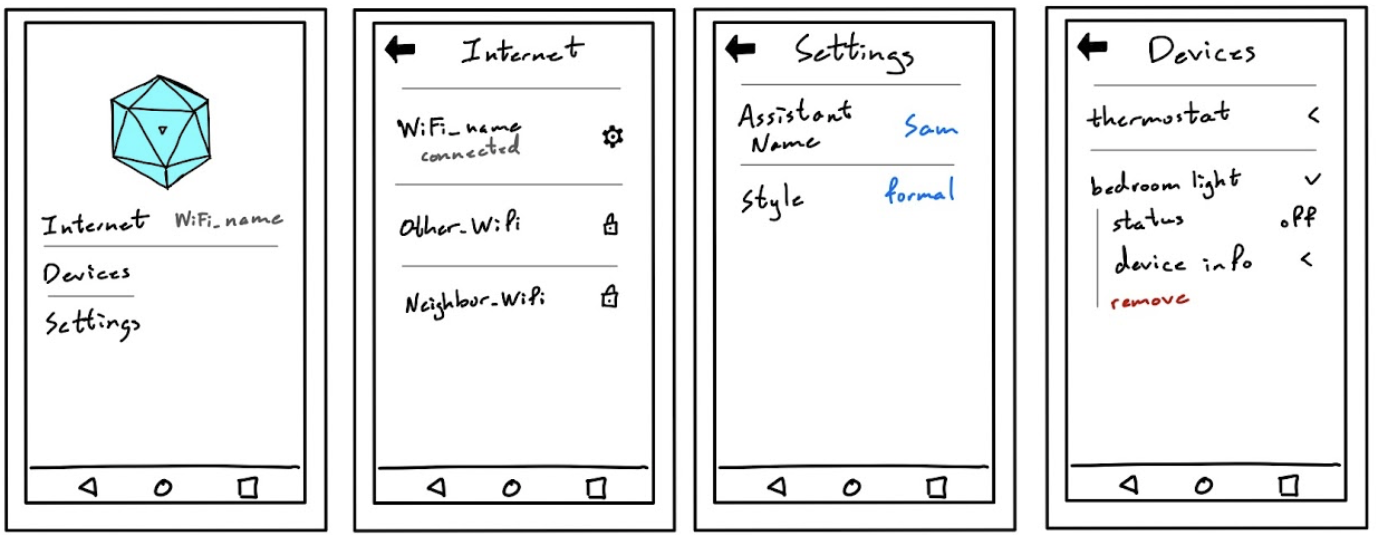 Internet WiFi_name
Devices
Settings
Internet
WiFi_name
connected
Other_Wifi
Neighbor_Wifi
Settings
Assistant
Name Sam
Style formal
Devices
thermostat
bedroom light
status off
device info
remove